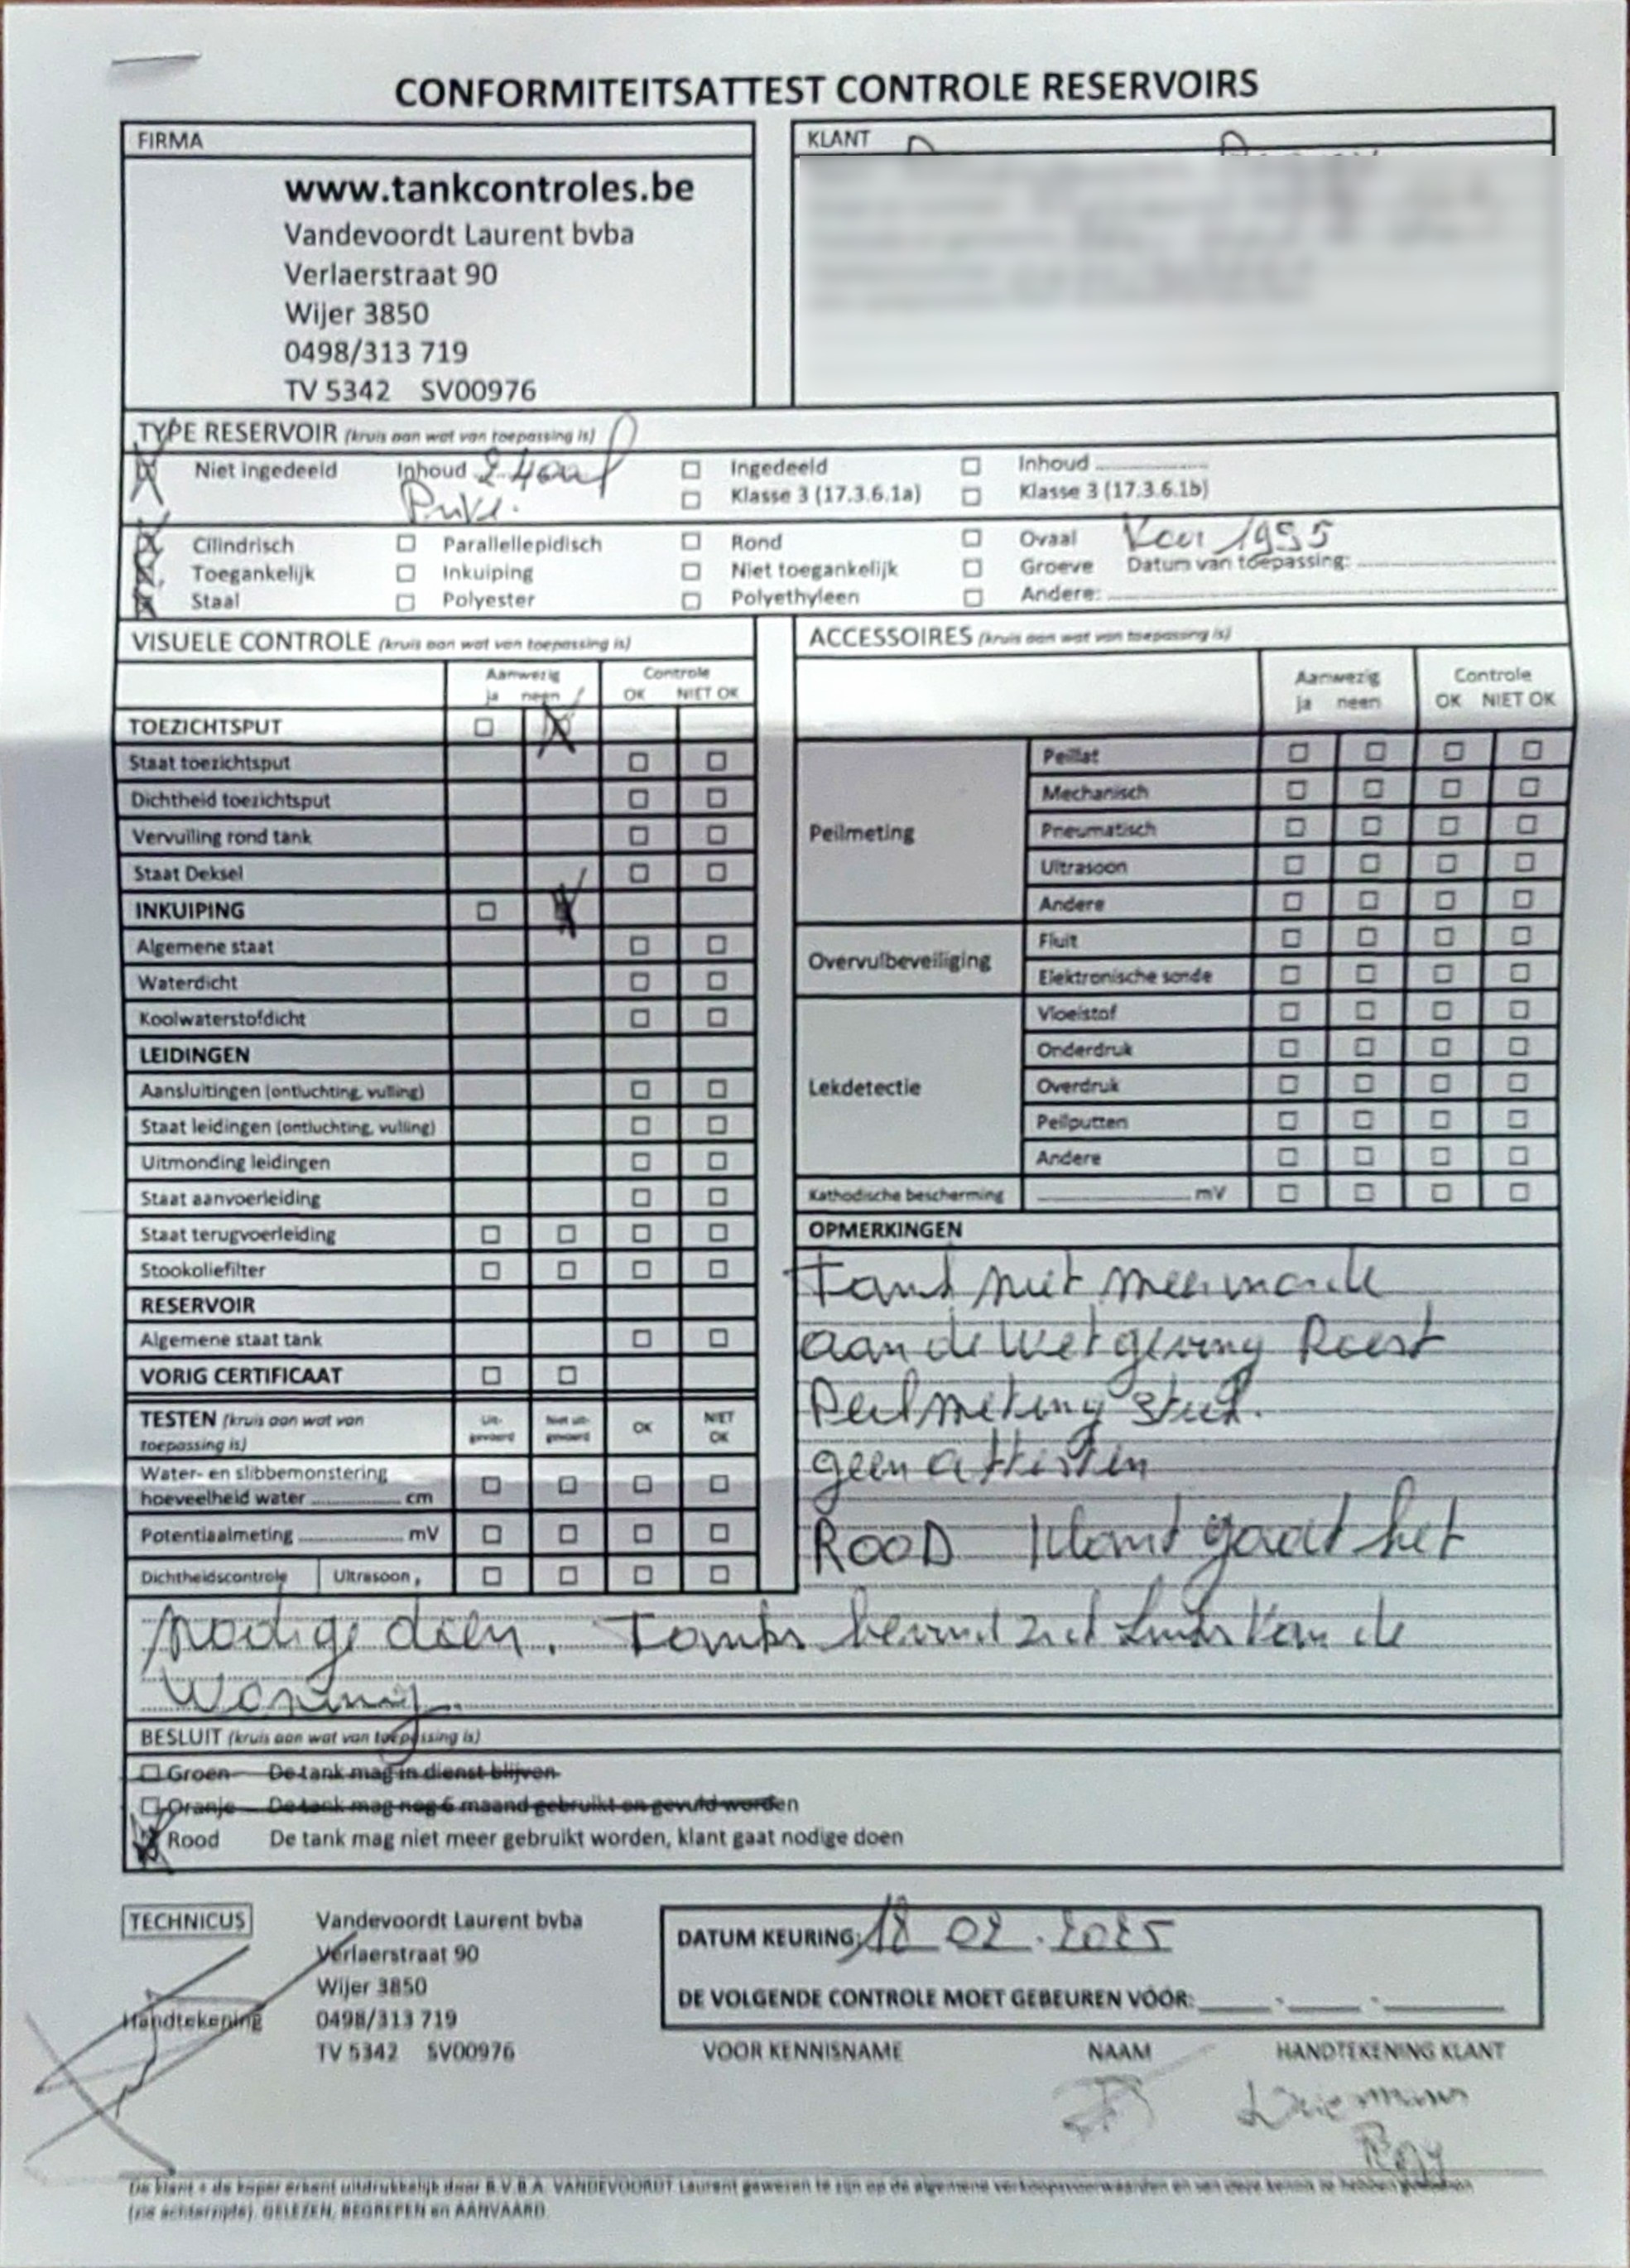 CONFORMITEITSATTEST CONTROLE RESERVOIRS
FIRMA
www.tankcontroles.be
Vandevoordt Laurent bvba
Verlaerstraat 90
Wijer 3850
0498/313 719
TV 5342 SV00976
KLANT
TYPE RESERVOIR (kruis aan wat van toepassing is)
Niet ingedeeld Inhoud Ingedeeld Inhoud
Klasse 3 (17.3.6.1a) Klasse 3 (17.3.6.1b)
Cilindrisch Parallellepidisch Rond Ovaal Voor 1995
Toegankelijk Inkuiping Niet toegankelijk Groeve Datum van toepassing:
Staal Polyester Polyethyleen Andere:
VISUELE CONTROLE (kruis aan wat van toepassing is)
Aanwezig Controle
ja neen OK NIET OK
TOEZICHTSPUT
Staat toezichtsput
Dichtheid toezichtsput
Vervuiling rond tank
Staat Deksel
INKUIPING
Algemene staat
Waterdicht
Koolwaterstofdicht
LEIDINGEN
Aansluitingen (ontluchting, vulling)
Staat leidingen (ontluchting, vulling)
Uitmonding leidingen
Staat aanvoerleiding
Staat terugvoerleiding
Stookoliefilter
RESERVOIR
Algemene staat tank
VORIG CERTIFICAAT
TESTEN (kruis aan wat van toepassing is)
Uit-gevoerd Niet uit-gevoerd OK NIET OK
Water- en slibbemonstering
hoeveelheid water cm
Potentiaalmeting mV
Dichtheidscontrole Ultrasoon,
ACCESSOIRES (kruis aan wat van toepassing is)
Aanwezig Controle
ja neen OK NIET OK
Peilmeting
Peillat
Mechanisch
Pneumatisch
Ultrasoon
Andere
Overvulbeveiliging
Fluit
Elektronische sonde
Lekdetectie
Vloeistof
Onderdruk
Overdruk
Peilputten
Andere
Kathodische bescherming mV
OPMERKINGEN
Tank niet meer
aan de wetgeving Roest
Peilmeting stuk.
geen attesten
ROOD klant gaat het
nodige doen. bevind zich van de
woning.
BESLUIT (kruis aan wat van toepassing is)
Groen De tank mag in dienst blijven
Oranje De tank mag nog 6 maand gebruikt en gevuld worden
Rood De tank mag niet meer gebruikt worden, klant gaat nodige doen
TECHNICUS
Vandevoordt Laurent bvba
Verlaerstraat 90
Wijer 3850
Handtekening 0498/313 719
TV 5342 SV00976
DATUM KEURING: 18 02 . 2025
DE VOLGENDE CONTROLE MOET GEBEUREN VÓÓR:
VOOR KENNISNAME NAAM HANDTEKENING KLANT
De klant + de koper erkent uitdrukkelijk door B.V.B.A. VANDEVOORDT Laurent gewezen te zijn op de algemene verkoopsvoorwaarden en van deze kennis te hebben genomen
(zie achterzijde). GELEZEN, BEGREPEN en AANVAARD.